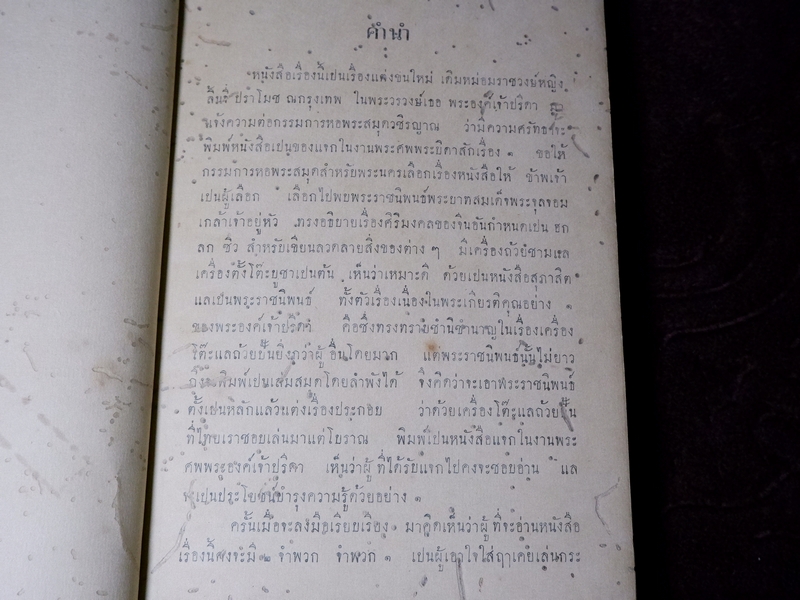 คำนำ
หนังสือเรื่องนี้เปนเรื่องแต่งขึ้นใหม่ เดิมหม่อมราชวงษ์หญิง
ลั้นจี่ ปราโมช ณกรุงเทพ ในพระวรวงษ์เธอ พระองค์เจ้าปรีดา
แจ้งความต่อกรรมการหอพระสมุดวชิรญาณ ว่ามีความศรัทธาจะ
พิมพ์หนังสือเปนของแจกในงานพระศพพระบิดาสักเรื่อง ๑ ขอให้
กรรมการหอพระสมุดสำหรับพระนครเลือกเรื่องหนังสือให้ ข้าพเจ้า
เปนผู้เลือก เลือกไปพบพระราชนิพนธ์พระบาทสมเด็จพระจุลจอม
เกล้าเจ้าอยู่หัว ทรงอธิบายเรื่องศิริมงคลของจีนอันกำหนดเปน ฮก
ลก ซิ่ว สำหรับเขียนลวดลายสิ่งของต่าง ๆ มีเครื่องถ้วยชามแล
เครื่องตั้งโต๊ะบูชาเปนต้น เห็นว่าเหมาะดี ด้วยเปนหนังสือสุภาสิต
แลเปนพระราชนิพนธ์ ทั้งตัวเรื่องเนื่องในพระเกียรติคุณอย่าง ๑
ของพระองค์เจ้าปรีดา คือซึ่งทรงทราบชำนิชำนาญในเรื่องเครื่อง
โต๊ะแลถ้วยปั้นยิ่งกว่าผู้อื่นโดยมาก แต่พระราชนิพนธ์นั้นไม่ยาว
ถึงจะพิมพ์เปนเล่มสมุดโดยลำพังได้ จึงคิดว่าจะเอาพระราชนิพนธ์
ตั้งเปนหลักแล้วแต่งเรื่องประกอบ ว่าด้วยเครื่องโต๊ะแลถ้วยปั้น
ที่ไทยเราชอบเล่นมาแต่โบราณ พิมพ์เปนหนังสือแจกในงานพระ
ศพพระองค์เจ้าปรีดา เห็นว่าผู้ที่ได้รับแจกไปคงจะชอบอ่าน แล
เปนประโยชน์บำรุงความรู้ด้วยอย่าง ๑
ครั้นเมื่อจะลงมือเรียบเรียง มาคิดเห็นว่าผู้ที่จะอ่านหนังสือ
เรื่องนี้คงจะมี ๒ จำพวก จำพวก ๑ เปนผู้เอาใจใส่ฤๅเคยเล่นกระ